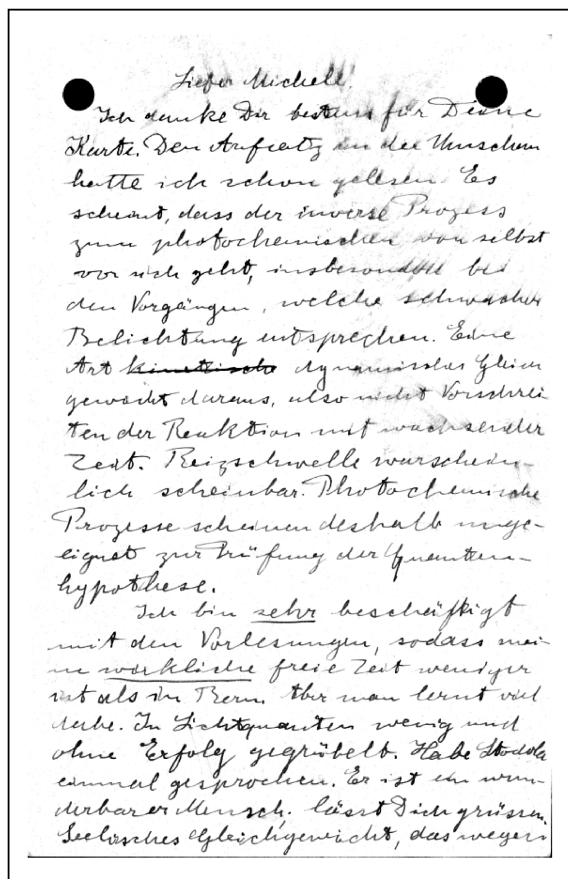 Lieber Michele!
Ich danke Dir bestens für Deine
Karte. Den Aufsatz in der Umschau
hatte ich schon gelesen. Es
scheint, dass der inverse Prozess
zum photochemischen von selbst
vor sich geht, insbesondere bei
den Vorgängen, welche schwacher
Belichtung entsprechen. Eine
Art kinetische dynamisches Gleich
gewicht daraus, also nicht Vorschrei
ten der Reaktion mit wachsender
Zeit. Reizschwelle warschein-
lich scheinbar. Photochemische
Prozesse scheinen deshalb unge-
eignet zur Prüfung der Quanten-
hypothese.
Ich bin sehr beschäftigt
mit den Vorlesungen, sodass mei
ne wirkliche freie Zeit weniger
ist als in Bern. Aber man lernt viel
dabei. In Lichtquanten wenig und
ohne Erfolg gegrübelt. Habe Stodola
einmal gesprochen. Er ist ein wun-
derbarer Mensch, lässt Dich grüssen.
Seelisches Gleichgewicht, das wegen